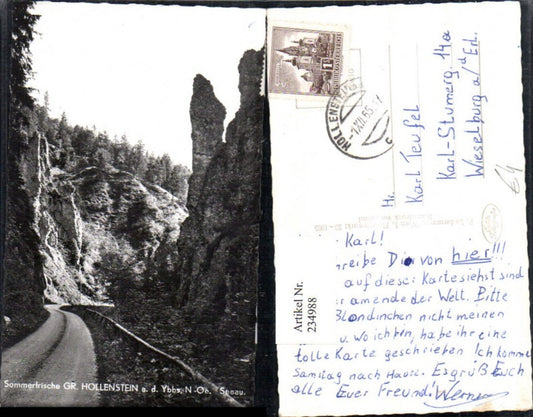 Sommerfrische GR. HOLLENSTEIN a. d. Ybbs, N.-Oe.
HOLLENSTEIN
-1.XII.65-17
C
Hr.
Karl Teufel
Karl-Sturmerg. 14a
Wieselburg a/d Erl.
64
Karl!
reibe Dir von hier!!!
auf dieser Karte siehst sind
r am ende der Welt. Bitte
Blondinchen nicht meinen
u. wo ich bin, habe ihr eine
tolle Karte geschrieben Ich komme
Samstag nach Hause. Es grüßt Euch
alle Euer Freund! Werner
Artikel Nr.
234988